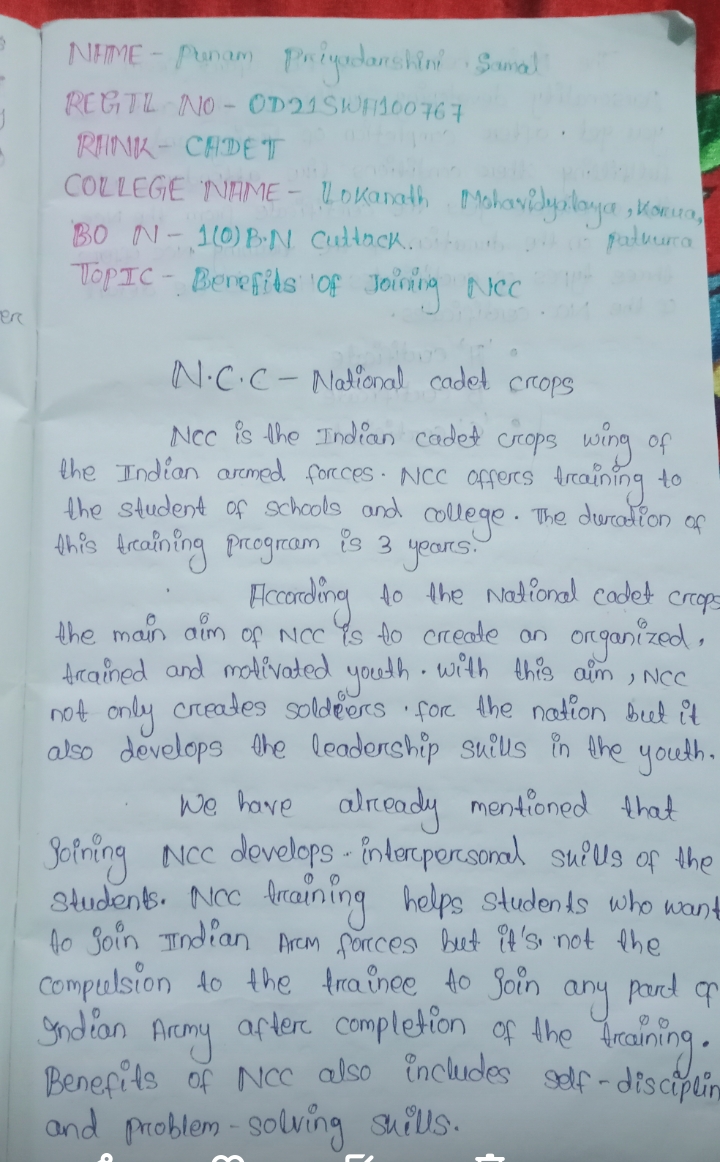 NAME - Punam Priyadarshini Samal
REGTL NO - OD21SWA100767
RANK - CADET
COLLEGE NAME - Lokanath Mohavidyalaya, Korua,
patkura
BO N - 1(O)B.N Cuttack.
TOPIC - Benefits of Joining NCC
N.C.C - National cadet crops
NCC is the Indian cadet crops wing of
the Indian armed forces. NCC offers training to
the student of schools and college. The duration of
this training program is 3 years.
According to the National cadet crops
the main aim of NCC is to create an organized,
trained and motivated youth. with this aim, NCC
not only creates soldiers for the nation but it
also develops the leadership skills in the youth.
We have already mentioned that
Joining NCC develops interpersonal skills of the
students. NCC training helps students who want
to Join Indian Arm forces but it's not the
compulsion to the trainee to Join any part of
Indian Army after completion of the training.
Benefits of NCC also includes self-disciplin
and problem-solving skills.